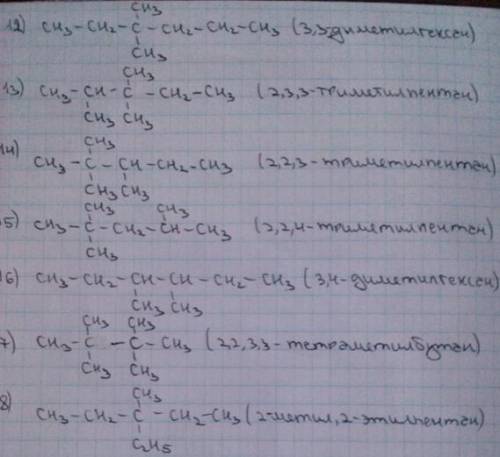 CH₃
12) CH₃-CH₂-C-CH₂-CH₂-CH₃ (3,3-диметилгексан)
CH₃
CH₃
13) CH₃-CH-C-CH₂-CH₃ (2,3,3-триметилпентан)
CH₃ CH₃
CH₃
14) CH₃-C-CH-CH₂-CH₃ (2,2,3-триметилпентан)
CH₃ CH₃
CH₃ CH₃
5) CH₃-C-CH₂-CH-CH₃ (2,2,4-триметилпентан)
CH₃
6) CH₃-CH₂-CH-CH-CH₂-CH₃ (3,4-диметилгексан)
CH₃ CH₃
CH₃ CH₃
7) CH₃-C-C-CH₃ (2,2,3,3-тетраметилбутан)
CH₃ CH₃
CH₃
8) CH₃-CH₂-C-CH₂-CH₃ (2-метил,2-этилпентан)
C₂H₅